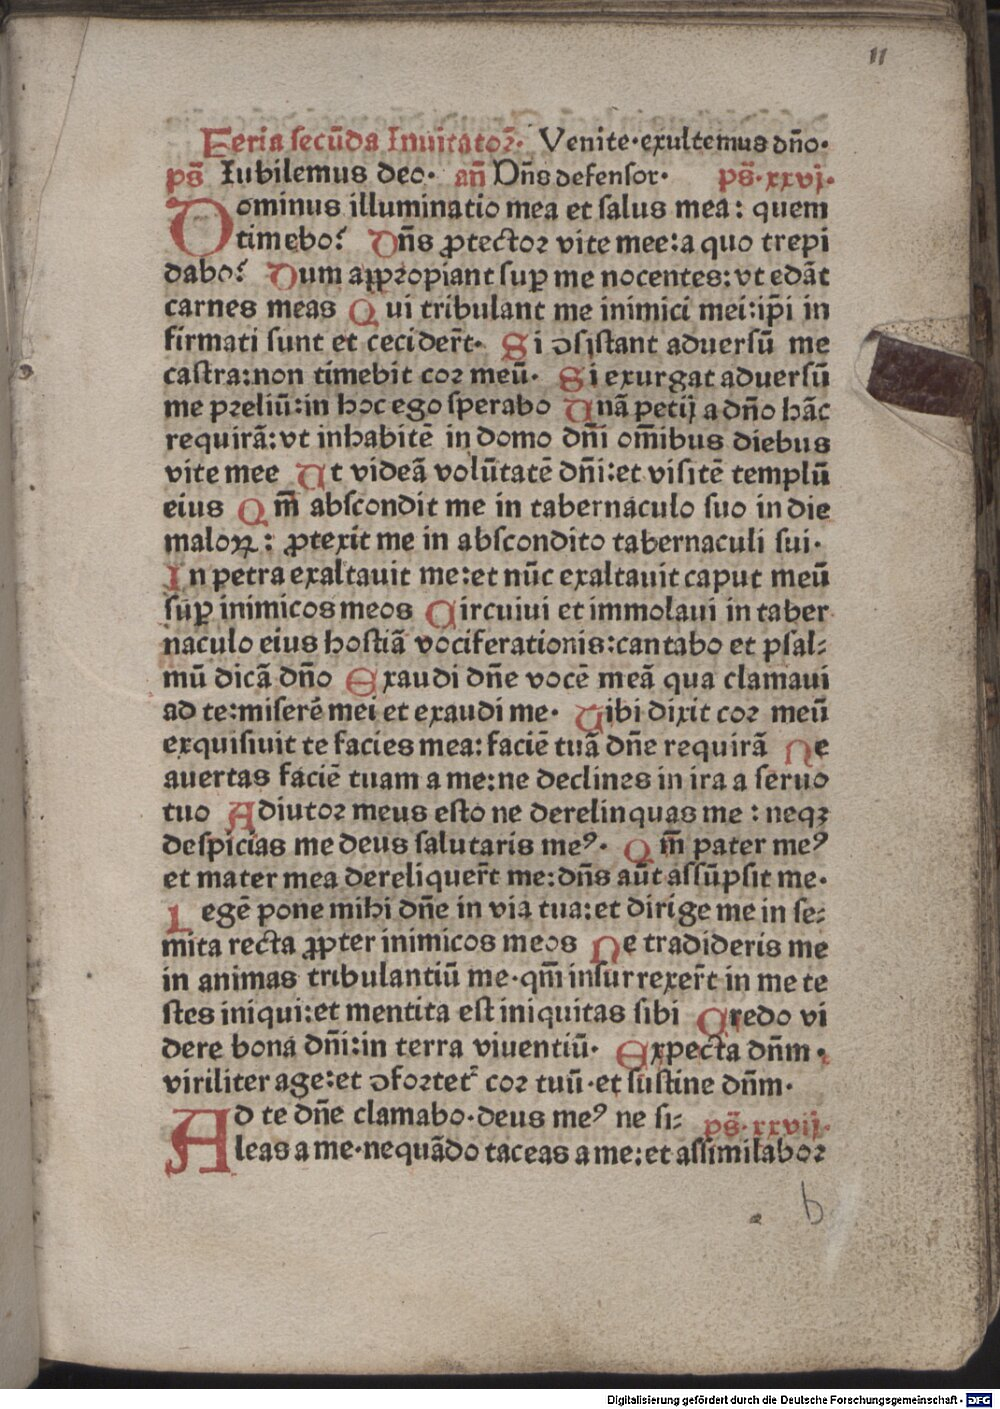 11
Feria secūda Inuitatoꝛ̄. Venite·exultemus dn̄o·
ps̄ Iubilemus deo· an̄ Dn̄s defensor· ps̄·xxvj·
Dominus illuminatio mea et salus mea: quem
timebo? Dn̄s ꝓtectoꝛ vite mee:a quo trepi
dabo? Dum aꝓpꝛopiant suꝑ me nocentes:vt edāt
carnes meas Qui tribulant me inimici mei:ip̄i in
firmati sunt et cecider̄t· Si ↄsistant aduersū me
castra:non timebit coꝛ meū· Si exurgat aduersū
me pꝛeliū:in hoc ego sperabo Unā petij a dn̄o hāc
requirā:vt inhabitē in domo dn̄i om̄ibus diebus
vite mee Ut videā volūtatē dn̄i:et visitē templū
eius Qm̄ abscondit me in tabernaculo suo in die
maloꝝ: ꝓtexit me in abscondito tabernaculi sui·
In petra exaltauit me:et nūc exaltauit caput meū
suꝑ inimicos meos Circuiui et immolaui in taber
naculo eius hostiā vociferationis:cantabo et psal⸗
mū dicā dn̄o Exaudi dn̄e vocē meā qua clamaui
ad te:miserē mei et exaudi me· Tibi dixit coꝛ meū
exquisiuit te facies mea: faciē tuā dn̄e requirā Ne
auertas faciē tuam a me:ne declines in ira a seruo
tuo Adiutoꝛ meus esto ne derelinquas me : neqꝫ
despicias me deus salutaris meꝰ· Qm̄ pater meꝰ
et mater mea dereliquer̄t me:dn̄s aūt assūpsit me·
Legē pone mihi dn̄e in via tua:et dirige me in se⸗
mita recta ꝓpter inimicos meos Ne tradideris me
in animas tribulantiū me·qm̄ insurrexer̄t in me te
stes iniqui:et mentita est iniquitas sibi Credo vi
dere bona dn̄i:in terra viuentiū· Expecta dn̄m·
viriliter age:et ↄfoꝛtet᷑ coꝛ tuū·et sustine dn̄m·
Ad te dn̄e clamabo·deus meꝰ ne si⸗ ps̄·xxvij·
leas a me·nequādo taceas a me:et assimilaboꝛ
b
Digitalisierung gefördert durch die Deutsche Forschungsgemeinschaft - DFG